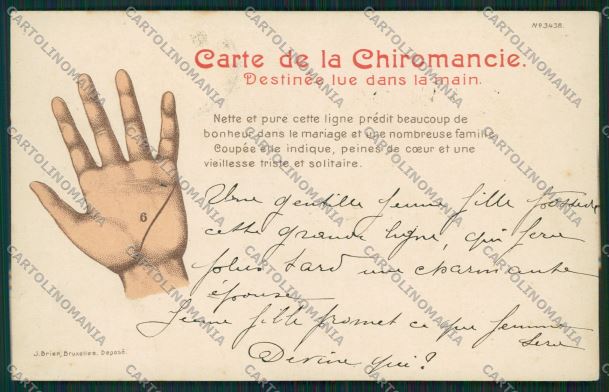 No 3438.
Carte de la Chiromancie.
Destinée lue dans la main.
Nette et pure cette ligne prédit beaucoup de
bonheur dans le mariage et une nombreuse famille
Coupée elle indique, peines de cœur et une
vieillesse triste et solitaire.
6
Une gentille jeune fille possède
cette grande ligne, qui fera
plus tard une charmante
épouse
Jeune fille promet ce que femme
sera
Devine qui?
J. Brien, Bruxelles. Déposé.
CARTOLINOMANIA